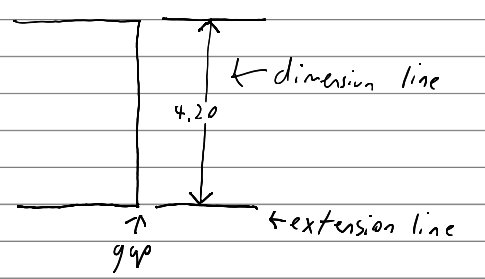 dimension line
4.20
extension line
gap